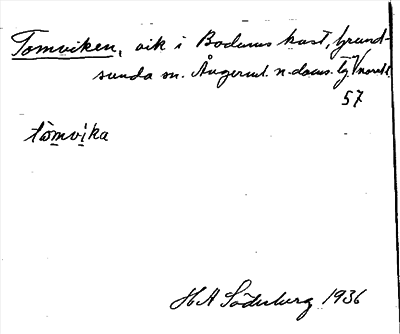 Tomviken, vik i Bodums kust, Grund-
sunda sn. Ångerml. n. doms.
57
tòmvika
H A Söderberg 1936